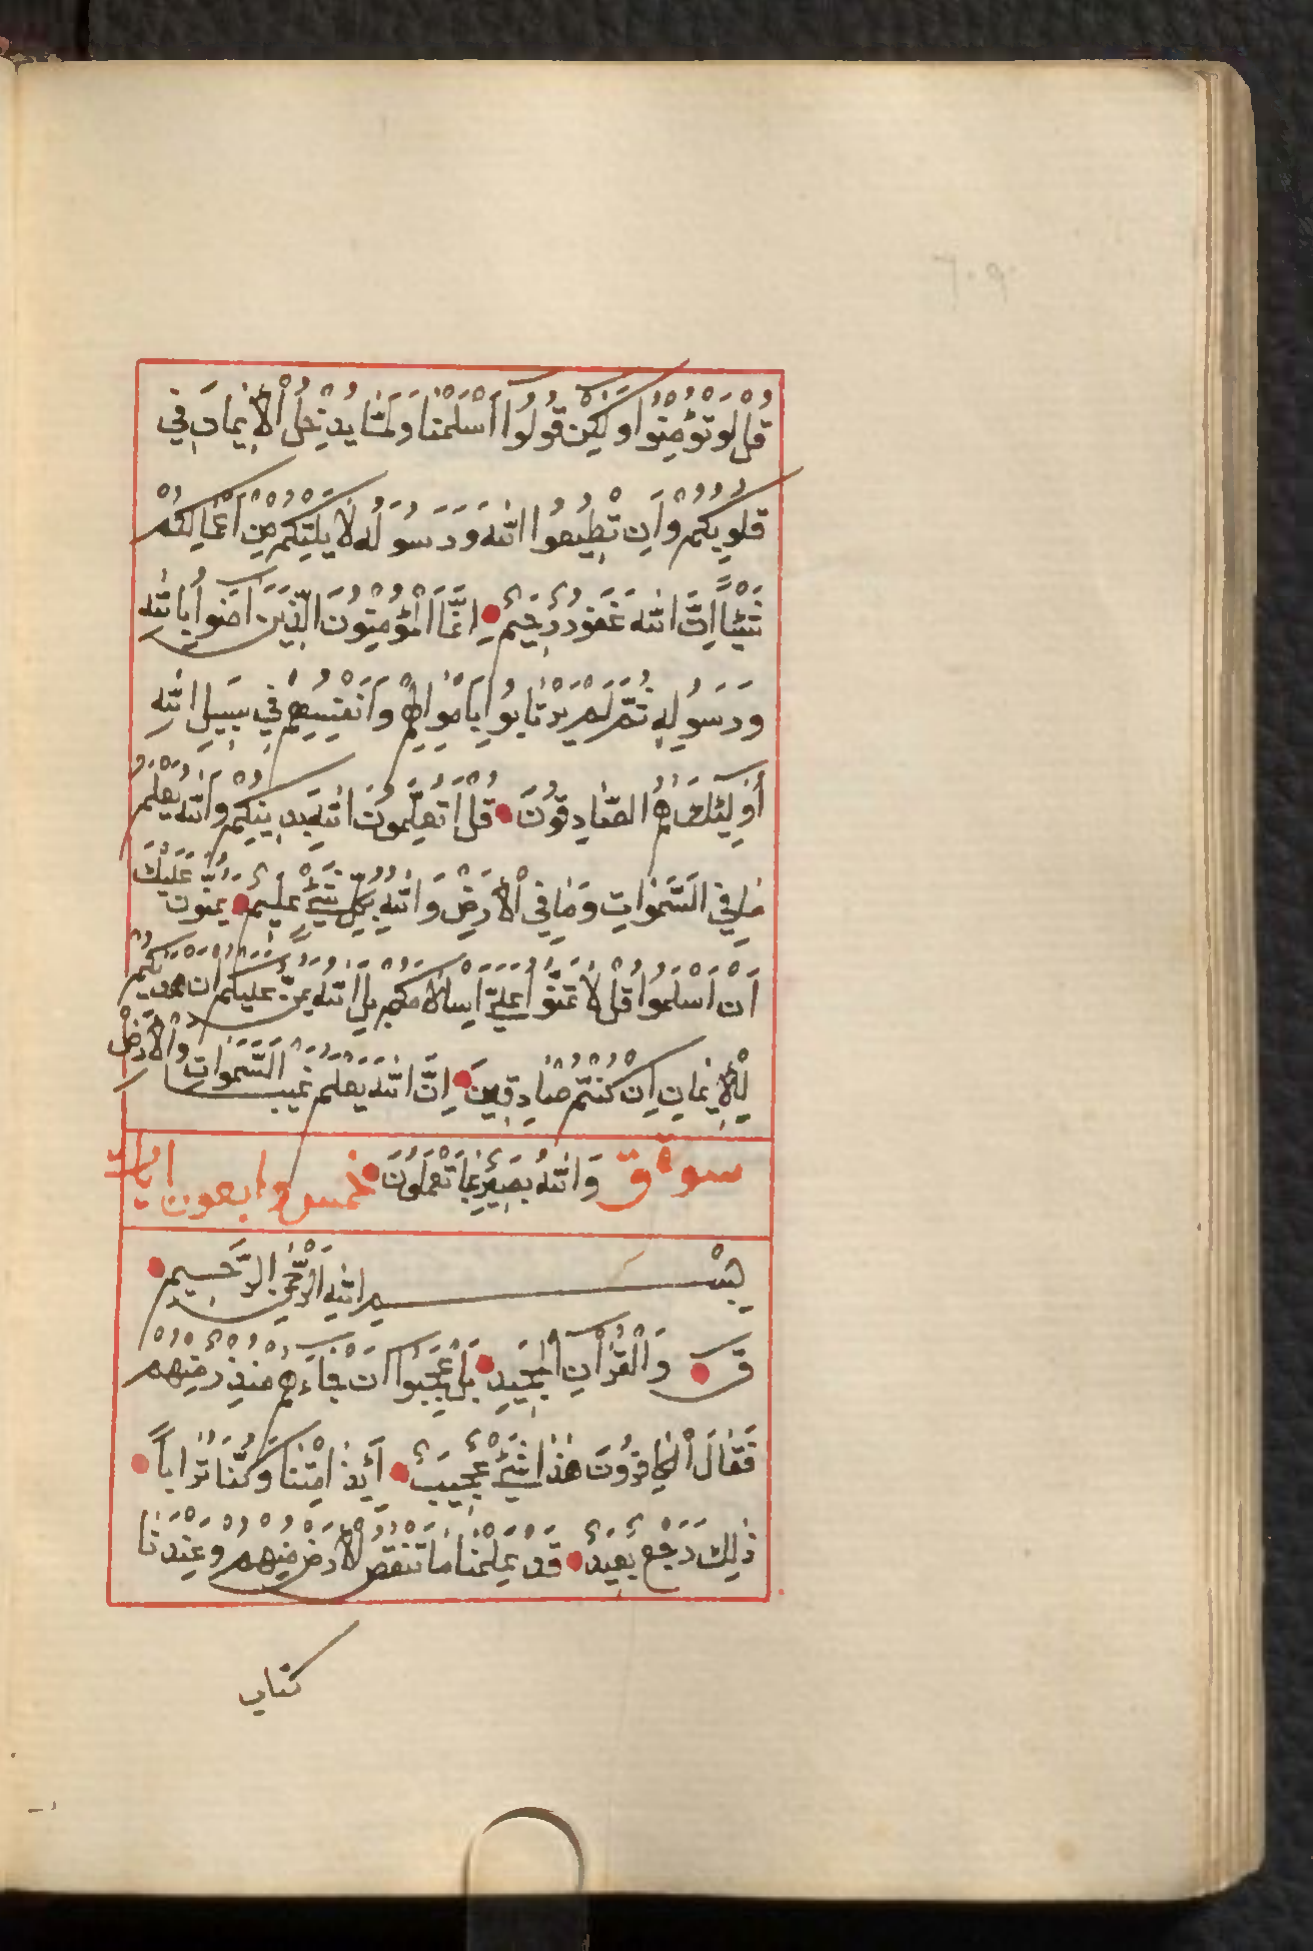 ٦٠٩
قُل لَوْ تُؤْمِنُوا وَلٰكِنْ قُولُوا أَسْلَمْنَا وَلَمَّا يَدْخُلِ الْإِيمَانُ فِي
قُلُوبِكُمْ وَإِن تُطِيعُوا اللّٰهَ وَرَسُولَهُ لَا يَلِتْكُمْ مِنْ أَعْمَالِكُمْ
شَيْئًا إِنَّ اللّٰهَ غَفُورٌ رَحِيمٌ إِنَّمَا الْمُؤْمِنُونَ الَّذِينَ آمَنُوا بِاللّٰهِ
وَرَسُولِهِ ثُمَّ لَمْ يَرْتَابُوا بِأَمْوَالِهِمْ وَأَنْفُسِهِمْ فِي سَبِيلِ اللّٰهِ
أُولٰئِكَ هُمُ الصَّادِقُونَ قُلْ أَتُعَلِّمُونَ اللّٰهَ بِدِينِكُمْ وَاللّٰهُ يَعْلَمُ
مَا فِي السَّمٰوَاتِ وَمَا فِي الْأَرْضِ وَاللّٰهُ بِكُلِّ شَيْءٍ عَلِيمٌ يَمُنُّونَ عَلَيْكَ
أَنْ أَسْلَمُوا قُلْ لَا تَمُنُّوا عَلَيَّ إِسْلَامَكُمْ بَلِ اللّٰهُ يَمُنُّ عَلَيْكُمْ أَن هَدٰيكُمْ
لِلْإِيمَانِ إِن كُنْتُمْ صَادِقِينَ إِنَّ اللّٰهَ يَعْلَمُ غَيْبَ السَّمٰوَاتِ وَالْأَرْضِ
سورة ق وَاللّٰهُ بَصِيرٌ بِمَا تَعْمَلُونَ خمس واربعون اية
بِسْمِ اللّٰهِ الرَّحْمٰنِ الرَّحِيمِ
ق وَالْقُرْآنِ الْمَجِيدِ بَلْ عَجِبُوا أَن جَاءَهُمْ مُنْذِرٌ مِنْهُمْ
فَقَالَ الْكَافِرُونَ هٰذَا شَيْءٌ عَجِيبٌ أَئِذَا مِتْنَا وَكُنَّا تُرَابًا
ذٰلِكَ رَجْعٌ بَعِيدٌ قَدْ عَلِمْنَا مَا تَنْقُصُ الْأَرْضُ مِنْهُمْ وَعِنْدَنَا
كتاب